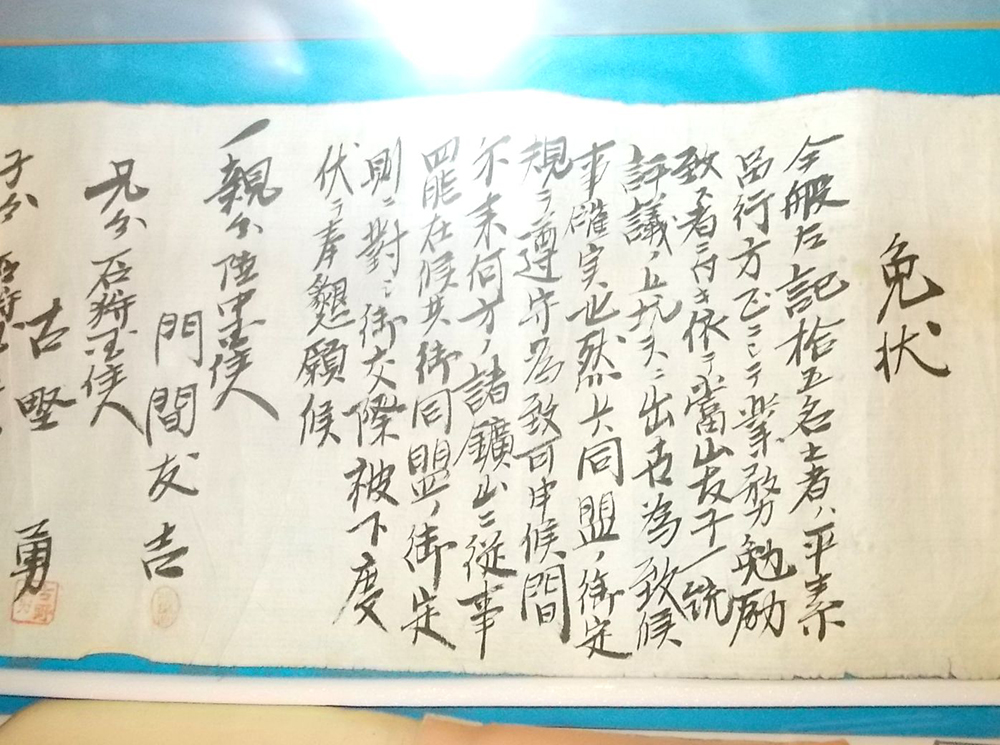 免状
今般左記拾五名之者ハ平素
品行方正ニシテ業務勉励
致ス者ニ付キ依テ當山友子一統
評議ノ上坑夫ニ出世為致候
事確実也然ル上ハ同盟ノ御定
規ヲ尊守為致可申候間
尓来何方ノ諸鑛山ニ従事
罷在候共御同盟ノ御定
則ニ對シ御交際被下度
伏テ奉懇願候
一親分陸中国住人
門間友吉
兄分石狩国住人
古野勇
子分